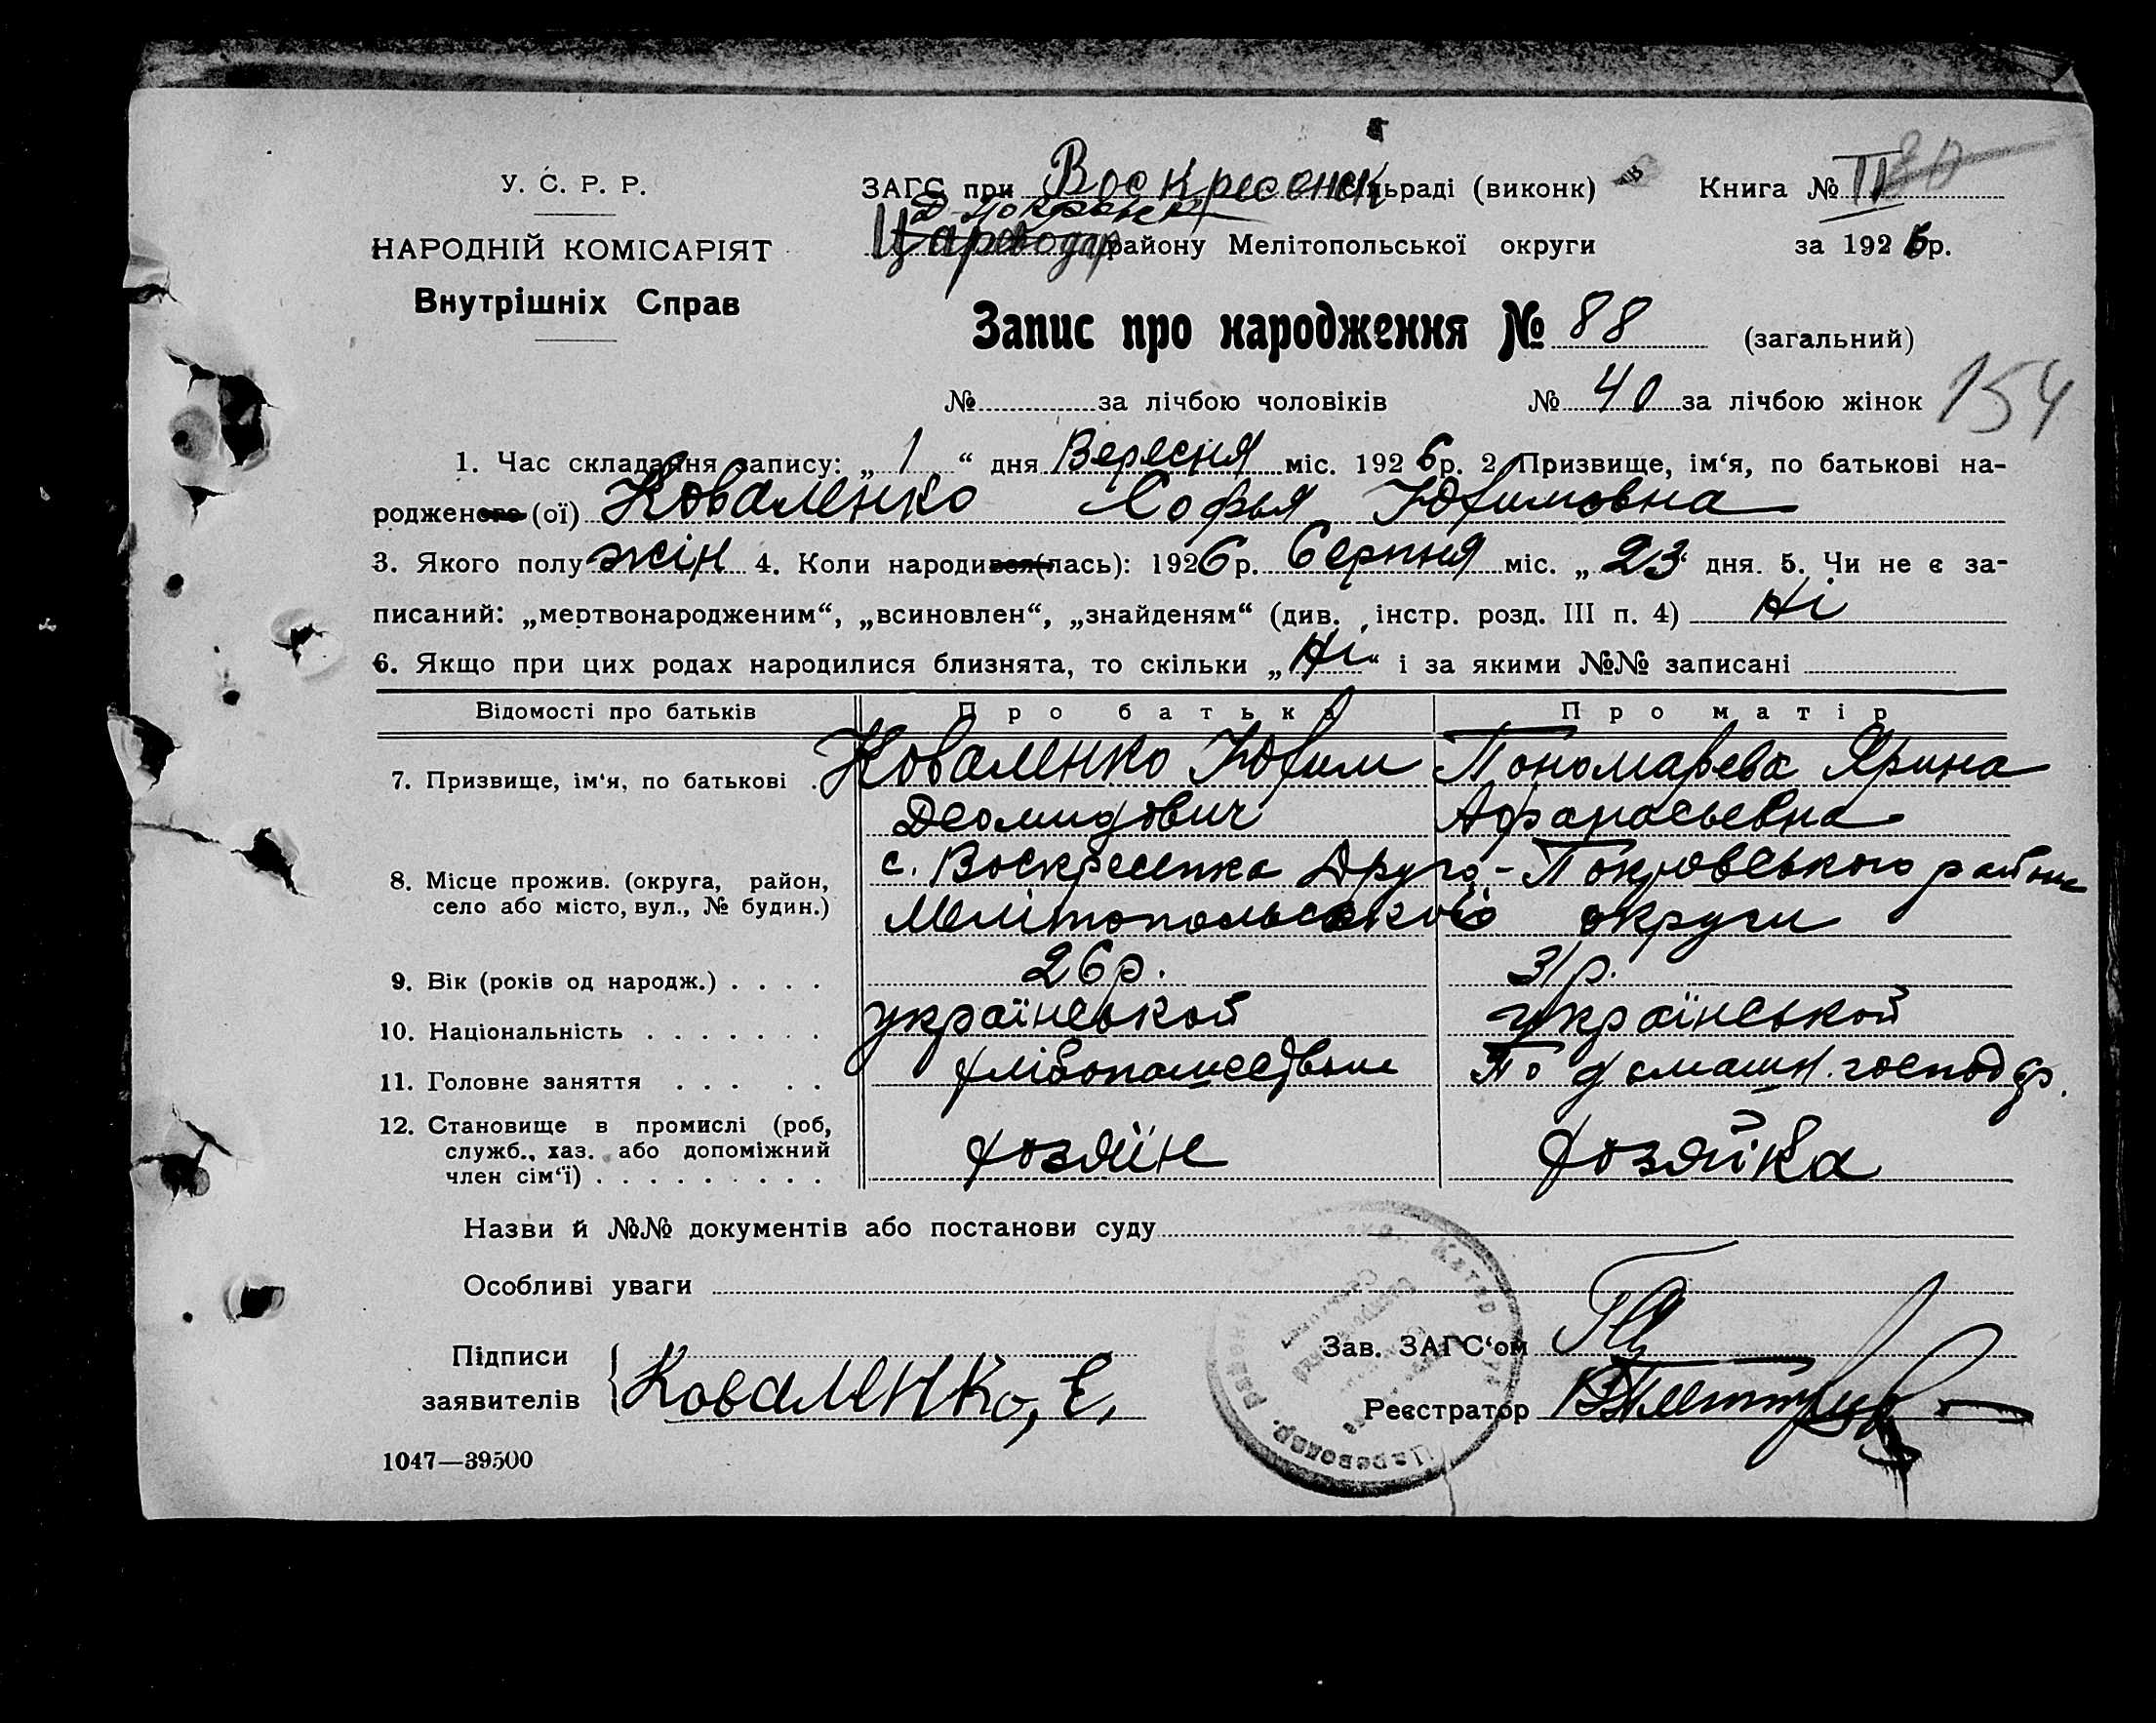 У. С. Р. Р.
НАРОДНІЙ КОМІСАРІЯТ
Внутрішніх Справ
ЗАГС при Воскресенск сільраді (виконк)
Д-Покровськ
Цареводар району Мелітопольської округи
Книга № II 20
за 1926р.
Запис про народження № 88 (загальний)
№ за лічбою чоловіків № 40 за лічбою жінок
154
1. Час складання запису: „ 1 “ дня Вересня міс. 1926р. 2. Призвище, ім‘я, по батькові на-
родженого (ої) Коваленко Софья Юхимовна
3. Якого полу жін 4. Коли народився(лась): 1926р. Серпня міс. „ 23 “ дня. 5. Чи не є за-
писаний: „мертвонародженим“, „всиновлен“, „знайденям“ (див. інстр. розд. III п. 4) Ні
6. Якщо при цих родах народилися близнята, то скільки „ Ні “ і за якими №№ записані
Відомості про батьків Про батька Про матір
7. Призвище, ім‘я, по батькові . Коваленко Юхим Пономарева Ярина
Деомидович Афанасьевна
8. Місце прожив. (округа, район, с. Воскресенка Друго-Покровського району
село або місто, вул., № будин.) Мелітопольської округи
9. Вік (років од народж.) . . . . 26 р. 31 р.
10. Національність . . . . . . . української української
11. Головне заняття . . . . . хлібопашеством По домашн. господар.
12. Становище в промислі (роб,
служб., хаз. або допоміжний хозяїн хозяйка
член сім‘ї) . . . . . . . . .
Назви й №№ документів або постанови суду
Особливі уваги
Підписи
заявителів Коваленко, Е,
Зав. ЗАГС‘ом
Реєстратор
Цареводар. район
1047—39500